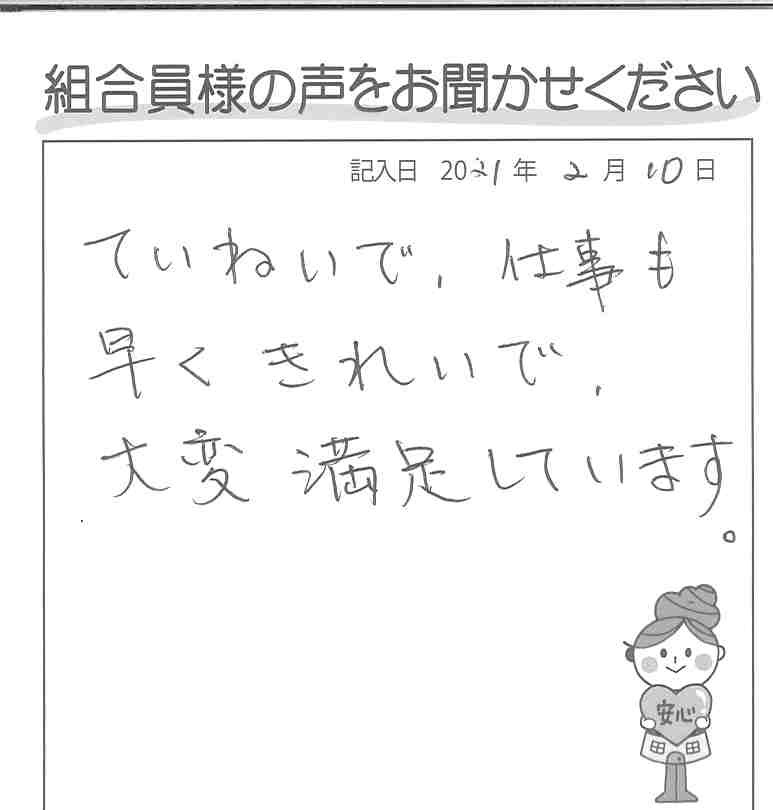 組合員様の声をお聞かせください
記入日 2021年 2月 10日
ていねいで、仕事も
早くきれいで、
大変満足しています。
安心